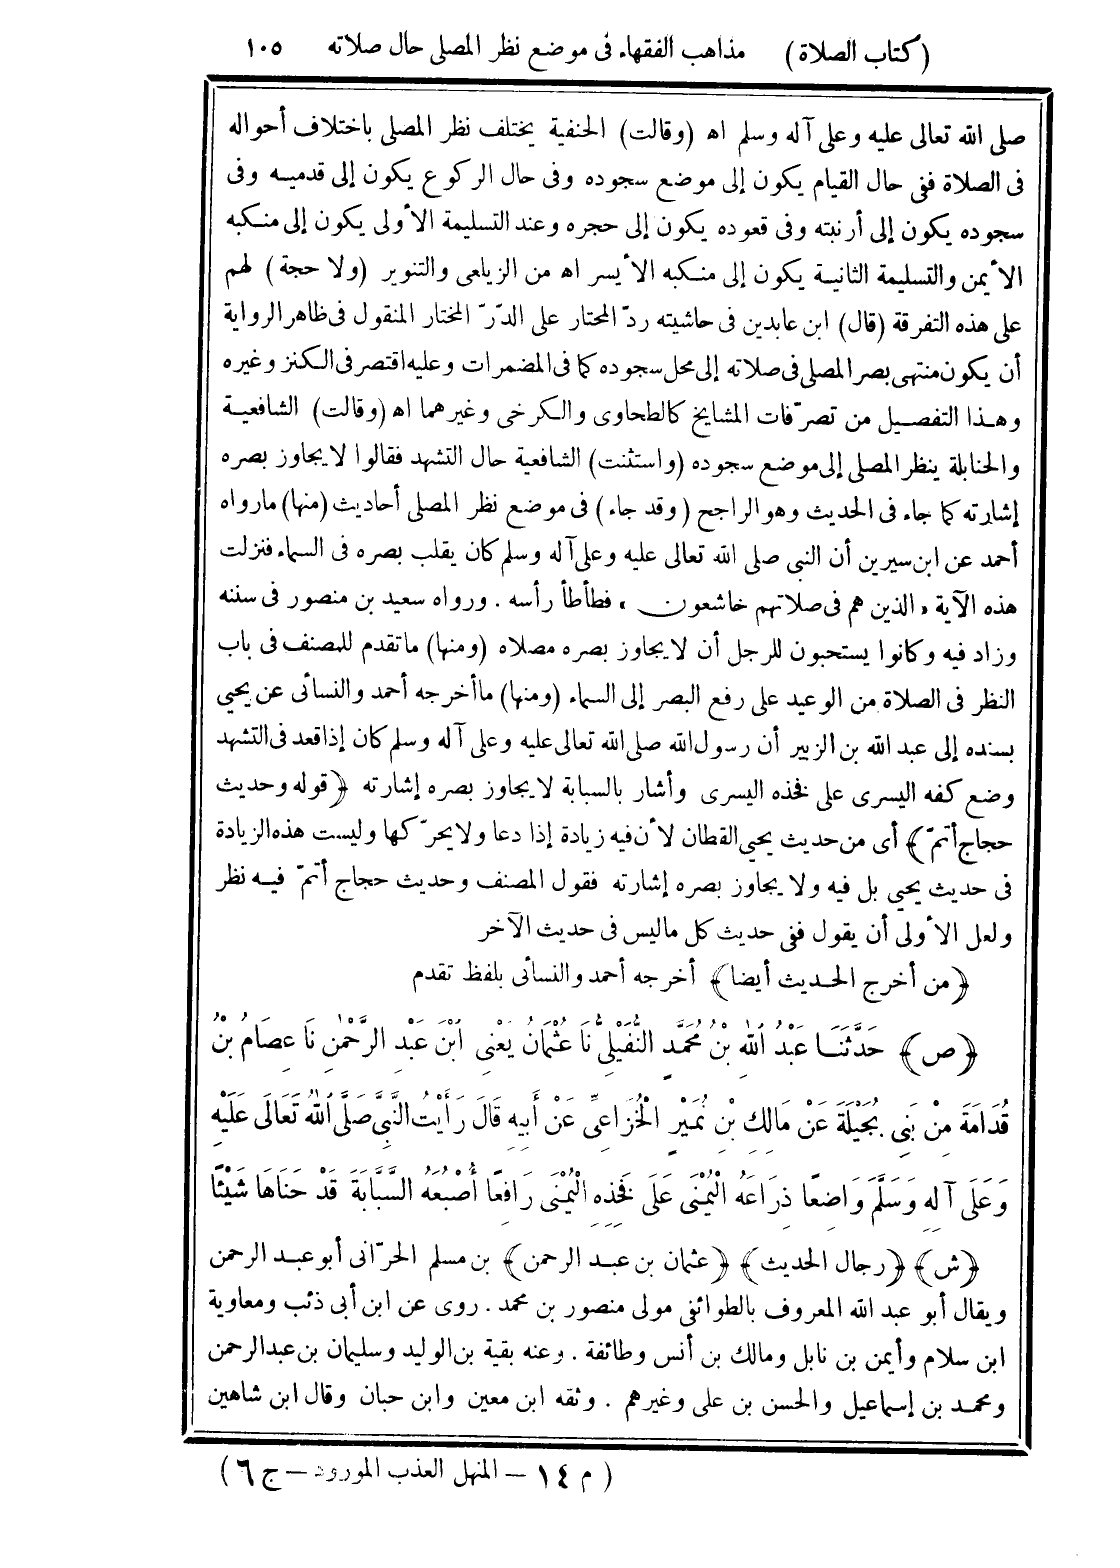 (كتاب الصلاة) مذاهب الفقهاء فى موضع نظر المصلى حال صلاته ١٠٥
صلى الله تعالى عليه وعلى آله وسلم اه (وقالت) الحنفية يختلف نظر المصلى باختلاف أحواله
فى الصلاة ففى حال القيام يكون إلى موضع سجوده وفى حال الركوع يكون إلى قدميه وفى
سجوده يكون إلى أرنبته وفى قعوده يكون إلى حجره وعند التسليمة الأولى يكون إلى منكبه
الأيمن والتسليمة الثانية يكون إلى منكبه الأيسر اه من الزيلعى والتنوير (ولا حجة) لهم
على هذه التفرقة (قال) ابن عابدين فى حاشيته ردّ المحتار على الدّرّ المختار المنقول فى ظاهر الرواية
أن يكون منتهى بصر المصلى فى صلاته إلى محل سجوده كما فى المضمرات وعليه اقتصر فى الكنز وغيره
وهذا التفصيل من تصرّفات المشايخ كالطحاوى والكرخى وغيرهما اه (وقالت) الشافعية
والحنابلة ينظر المصلى إلى موضع سجوده (واستثنت) الشافعية حال التشهد فقالوا لا يجاوز بصره
إشارته كما جاء فى الحديث وهو الراجح (وقد جاء) فى موضع نظر المصلى أحاديث (منها) مارواه
أحمد عن ابن سيرين أن النبى صلى الله تعالى عليه وعلى آله وسلم كان يقلب بصره فى السماء فنزلت
هذه الآية «الذين هم فى صلاتهم خاشعون» فطأطأ رأسه . ورواه سعيد بن منصور فى سننه
وزاد فيه وكانوا يستحبون للرجل أن لا يجاوز بصره مصلاه (ومنها) ماتقدم للمصنف فى باب
النظر فى الصلاة من الوعيد على رفع البصر إلى السماء (ومنها) ماأخرجه أحمد والنسائى عن يحيى
بسنده إلى عبد الله بن الزبير أن رسول الله صلى الله تعالى عليه وعلى آله وسلم كان إذا قعد فى التشهد
وضع كفه اليسرى على فخذه اليسرى وأشار بالسبابة لا يجاوز بصره إشارته ﴿قوله وحديث
حجاج أتمّ﴾ أى من حديث يحيى القطان لأن فيه زيادة إذا دعا ولا يحرّكها وليست هذه الزيادة
فى حديث يحيى بل فيه ولا يجاوز بصره إشارته فقول المصنف وحديث حجاج أتمّ فيه نظر
ولعل الأولى أن يقول ففى حديث كل ماليس فى حديث الآخر
﴿من أخرج الحديث أيضا﴾ أخرجه أحمد والنسائى بلفظ تقدم
﴿ص﴾ حَدَّثَنَا عَبْدُ اللهِ بْنُ مُحَمَّدٍ النُّفَيْلِيُّ نَا عُثْمَانُ يَعْنِي ابْنَ عَبْدِ الرَّحْمٰنِ نَا عِصَامُ بْنُ
قُدَامَةَ مِنْ بَنِي بُجَيْلَةَ عَنْ مَالِكِ بْنِ نُمَيْرٍ الْخُزَاعِيِّ عَنْ أَبِيهِ قَالَ رَأَيْتُ النَّبِيَّ صَلَّى اللهُ تَعَالَى عَلَيْهِ
وَعَلَى آلِهِ وَسَلَّمَ وَاضِعًا ذِرَاعَهُ الْيُمْنَى عَلَى فَخِذِهِ الْيُمْنَى رَافِعًا أُصْبُعَهُ السَّبَّابَةَ قَدْ حَنَاهَا شَيْئًا
﴿ش﴾ ﴿رجال الحديث﴾ ﴿عثمان بن عبد الرحمن﴾ بن مسلم الحرّانى أبو عبد الرحمن
ويقال أبو عبد الله المعروف بالطوائفى مولى منصور بن محمد . روى عن ابن أبى ذئب ومعاوية
ابن سلام وأيمن بن نابل ومالك بن أنس وطائفة . وعنه بقية بن الوليد وسليمان بن عبد الرحمن
ومحمد بن إسماعيل والحسن بن على وغيرهم . وثقه ابن معين وابن حبان وقال ابن شاهين
(م ١٤ – المنهل العذب المورود – ج ٦)